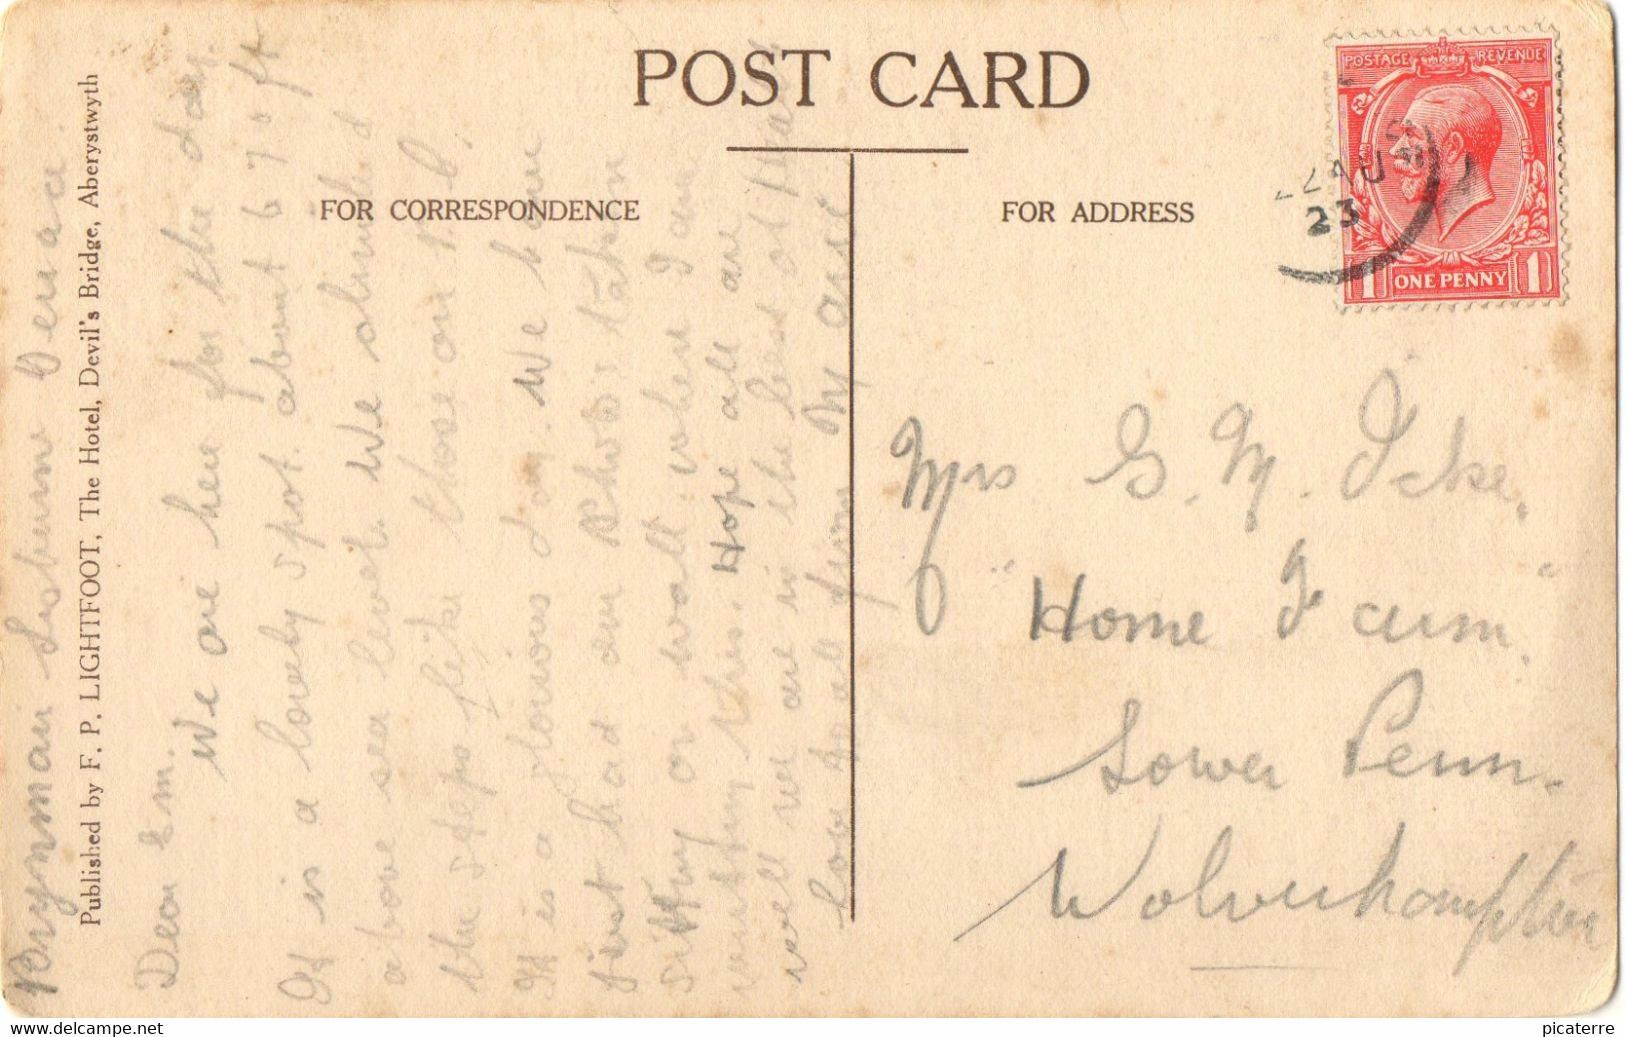 POST CARD
FOR CORRESPONDENCE
FOR ADDRESS
POSTAGE REVENUE
ONE PENNY
1 1
AU
23
Published by F. P. LIGHTFOOT, The Hotel, Devil's Bridge, Aberystwyth
Brynmair Lisburne Terrace.
Dear Em.
We are here for the day.
It is a lovely spot. about 670 ft
above sea level. We climbed
the steps like those on P.C.
It is a glorious day. We have
just had our Photos taken
sitting on wall where I am
writing this. Hope all are
well we are in the best of
love to all from
Mrs G. M. Icke,
"Home Farm."
Lower Penn.
Wolverhampton
picaterre